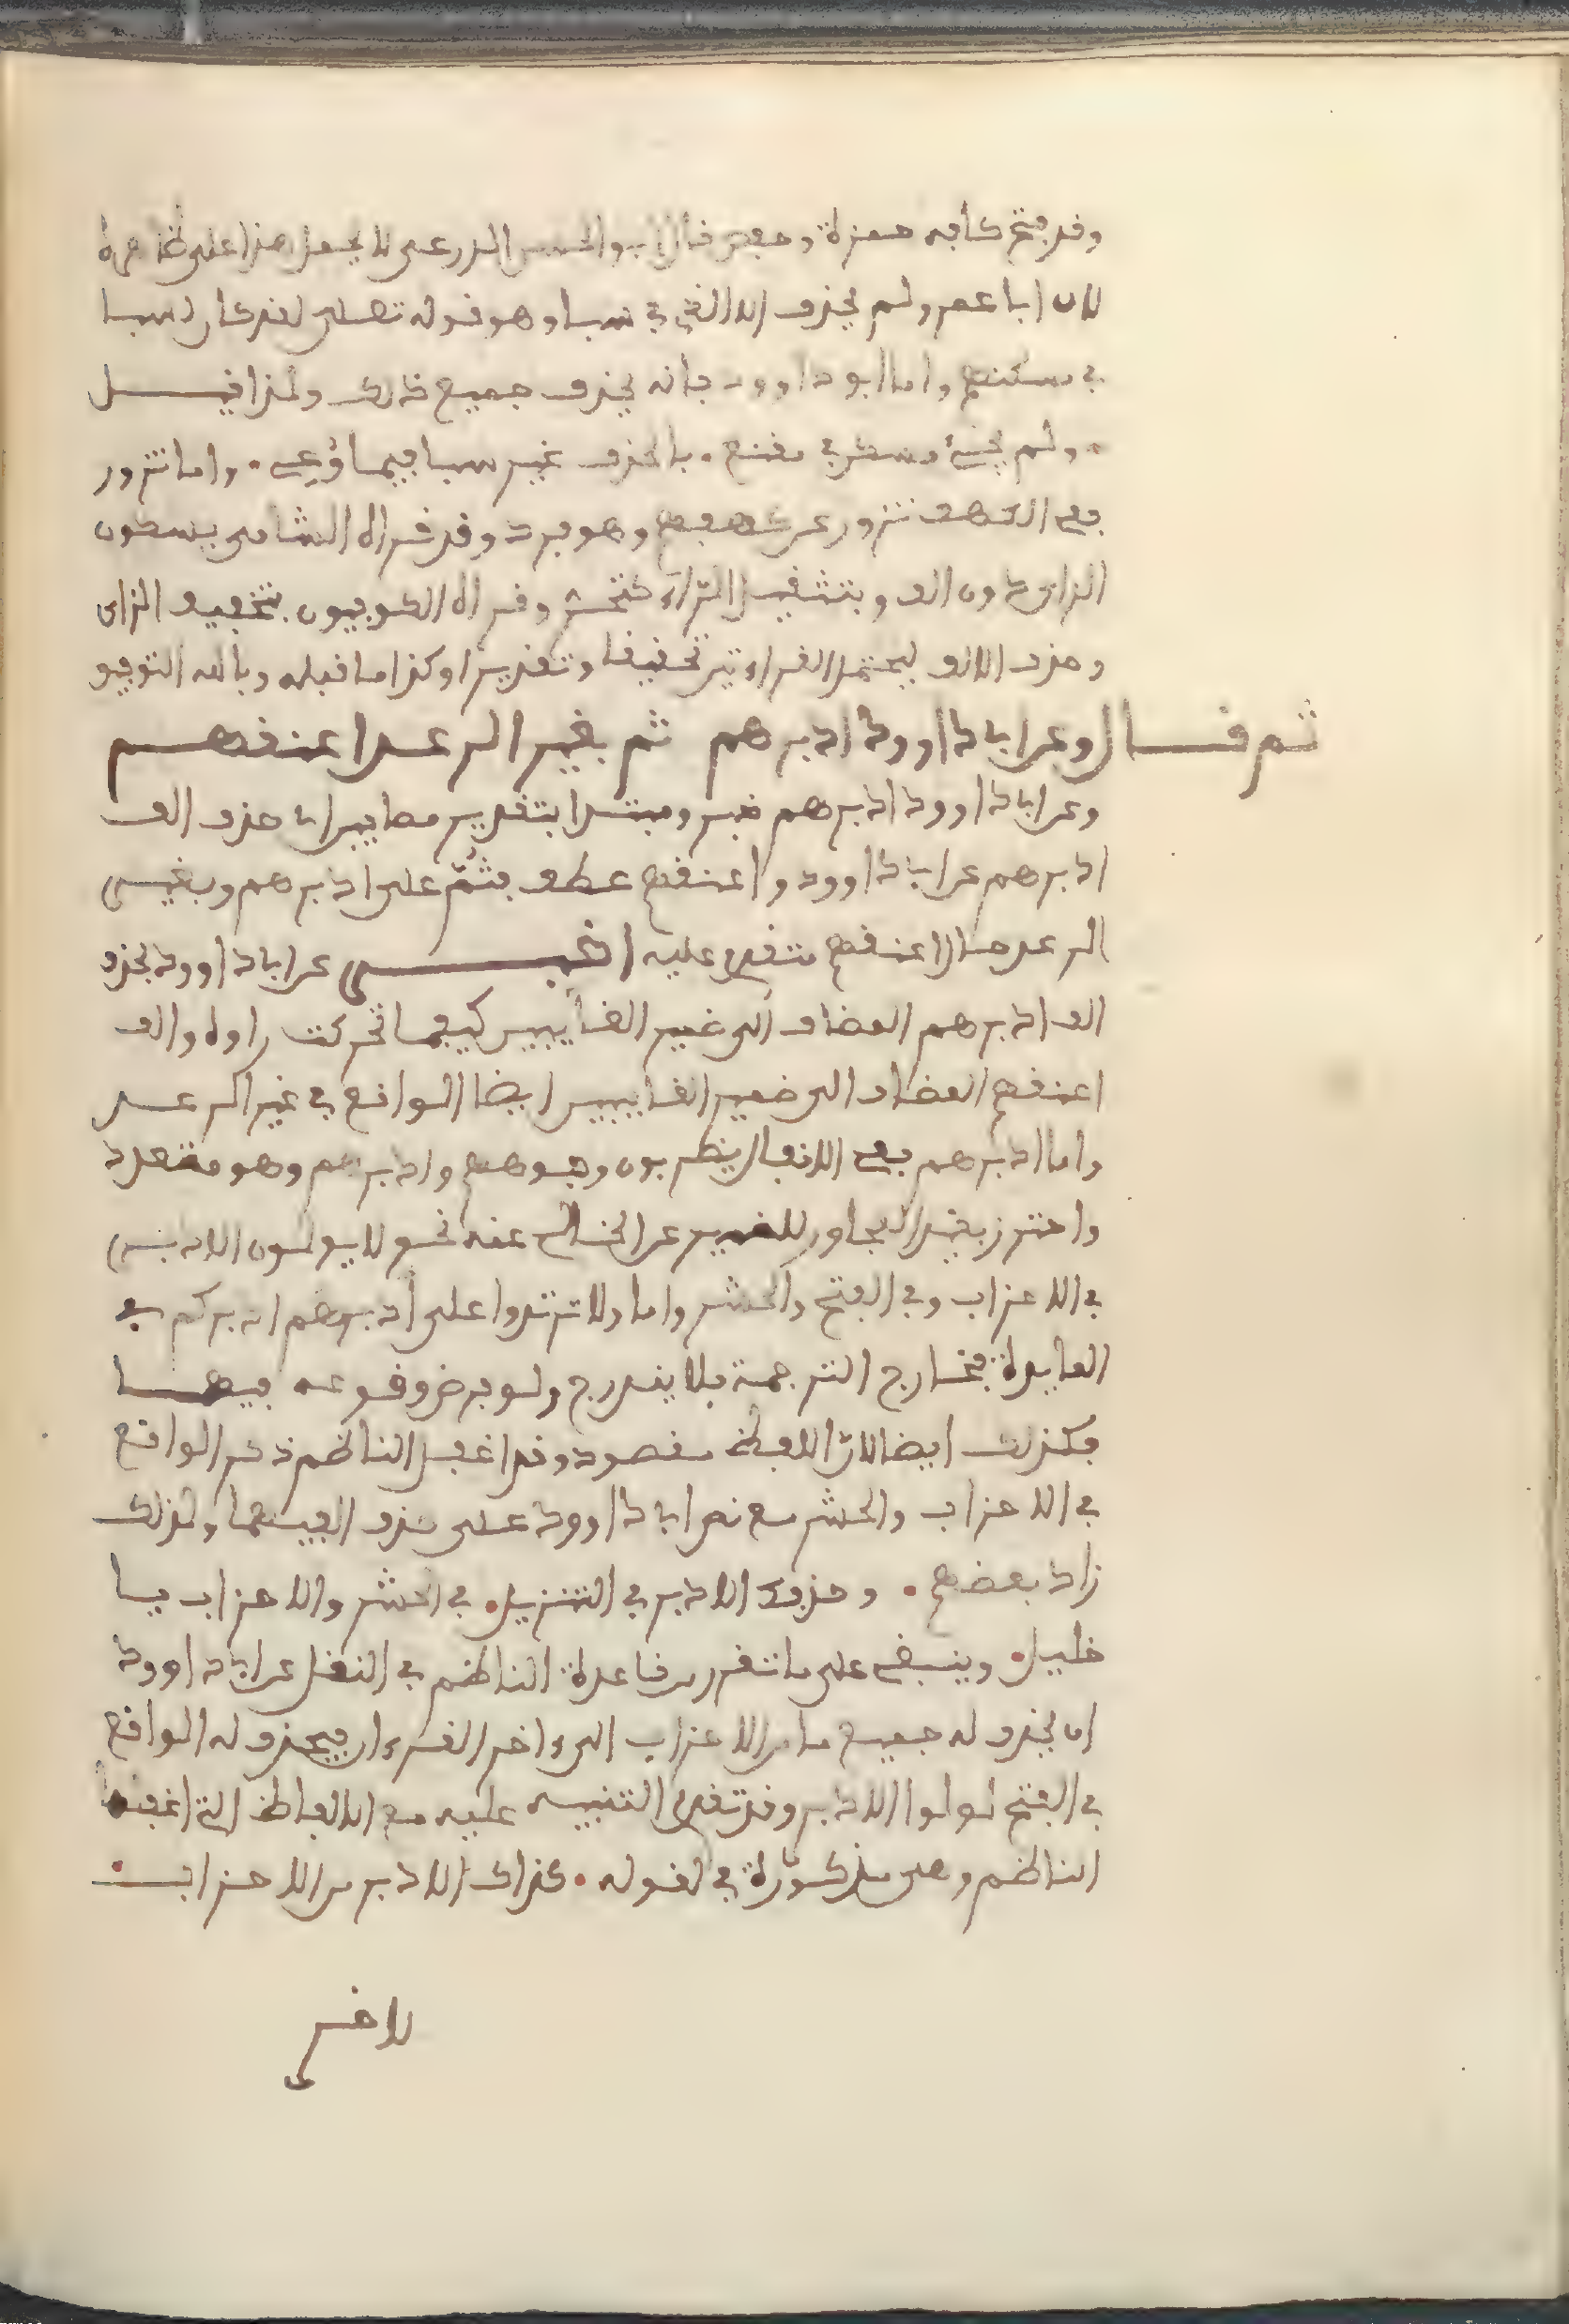 وقد فتح كافه حمزة وحفص قال ابو الحسن الدرعى لا يحمل هذا على ظاهره
لان ابا عمرو لم يحذف الا الذي في سبا وهو قوله تعلى لقد كان لسبا
في مسكنهم واما ابو داوود فانه يحذف جميع ذلك ولهذا قيل
• ولم يجئ مسكن في مقنع • بالحذف غير سبا فيما وُعِي • واما تزور
ففي الكهف تزور عن كهفهم وهو فرد وقد قراه الشامى بسكون
الزاى دون الف وبتثقيل الرّاء كتحمرّ وقراه الكوفيون بتخفيف الزاى
وحذف الالف ليحتمل القراءتين تحقيقا وتقديرا وكذا ما قبله وبالله التوفيق
ثم قال وعن ابى داوود ادبرهم ثم بغير الرعد اعنقهم
وعن ابى داوود ادبرهم خبر ومبتدا بتقدير مضافين اى حذف الف
ادبرهم عن ابى داوود واعنقهم عطف بثُمّ على ادبرهم وبغير
الرعد حال اعنقهم متقدم عليه اخبر عن ابى داوود بحذف
الف ادبرهم المضاف الى ضمير الغايبين كيفما تحركت راوه والف
اعنقهم المضاف الى ضمير الغايبين ايضا الواقع في غير الرعد
واما ادبرهم ففي الانفال يضربون وجوههم وادبرهم وهو متعدد
واحترز بقيد المجاور للضمير عن الخالى عنه نحو لا يولون الادبر
في الاحزاب وفي الفتح والحشر واما ولا ترتدوا على ادبرهم ادبركم في
المايدة فخارج الترجمة فلا يندرج ولو فرض وقوعه فيها
فكذلك ايضا لانّ اللفظ مقصود وقد اغفل الناظم ذكر الواقع
في الاحزاب والحشر مع نص ابى داوود على حذف الفيهما ولذلك
زاد بعضهم • وحذفك الادبر في التنزيل • في الحشر والاحزاب يا
خليل • وينبغي على ما تقرر من قاعدة الناظم في النقل عن ابى داوود
ان يحذف له جميع ما من الاحزاب الى ءاخر القرءان فيحذف له الواقع
في الفتح لولوا الادبر وقد تقدم التنبيه عليه مع الالفاظ التي اغفلها
الناظم وهى مذكورة في قوله • كذاك الادبر من الاحزاب •
لاخر